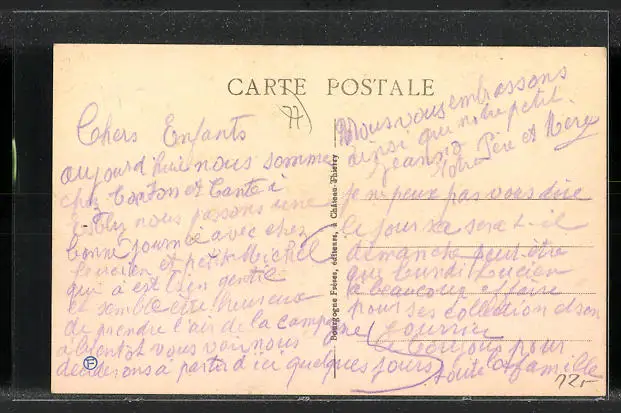 CARTE POSTALE
77
Chers Enfants
aujourd huie nous somme
chez tonton et tante à
nous passons une
bonne journée avec cher
Lucien et petit Michel
qui à est bien gentil
et semble etre heureux
de prendre l'air de la campagne
a bientot vous voir nous
deciderons à partir d'ici quelques jours
Bourgogne Frères, éditeurs, à Château-Thierry
Nous vous embrassons
ainsi que notre petit
Jeannot
Votre Père et Mère
je ne peux pas vous dire
le jour sa sera t-il
dimanche peut être
que lundi Lucien
a beaucoup affaire
pour ses collection et son
courrier
toujours pour
toute la famille
12-
F